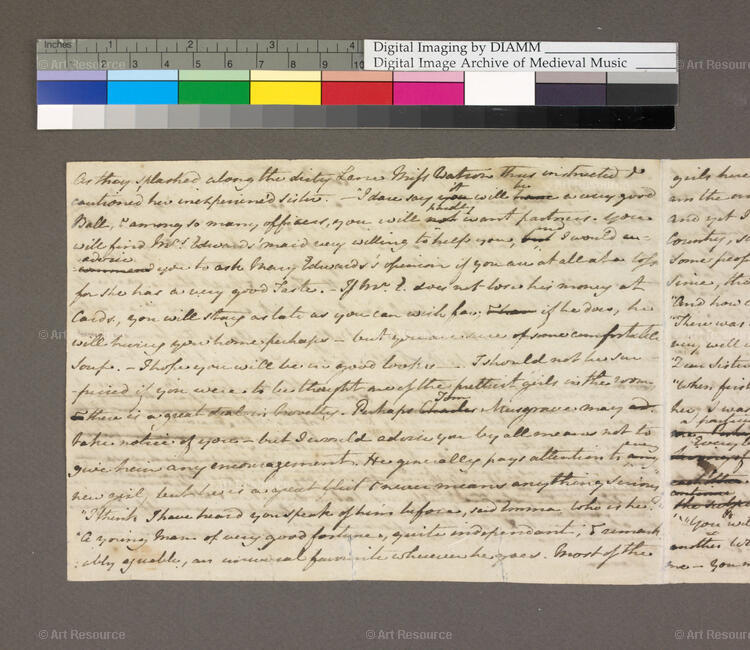 Inches 1 2 3 4
2 3 4 5 6 7 8 9 10
Digital Imaging by DIAMM
Digital Image Archive of Medieval Music
© Art Resource
© Art Resource
As they splashed along the dirty Lane Miss Watson thus instructed &
cautioned her inexperienced sister. – "I dare say it you will be have a very good
Ball, & among so many officers, you will hardly not want partners. You
will find Mrs Edwards' maid very willing to help you, and but I would
advise
command you to ask Mary Edwards's opinion if you are at all at a loss
for she has a very good Taste. – If Mr. E. does not lose his money at
Cards, you will stay as late as you can wish for; if he does, he
will hurry you home perhaps – but you are sure of some comfortable
Soup. – I hope you will be in good looks –. I should not be sur-
-prised if you were to be thought one of the prettiest girls in the room,
there is a great deal in Novelty. Perhaps Tom Charles Musgrave may
take notice of you – but I would advise you by all means not to
give him any encouragement. He generally pays attention to every
new girl, but he is a great flirt & never means anything serious."
"I think I have heard you speak of him before, said Emma, who is he?"
"A young Man of very good fortune, quite independant, & remark
:ably agreable, an universal favourite wherever he goes. Most of the
girls here
am the on
and yet I
County, s
Some peop
Since, tho
"And how c
"There was
very well
"Dear Sister
"When first
her, I was
Every
continue
"You
another
me – You
© Art Resource
© Art Resource
© Art Resource
© Art Resource
© Art Resource
© Art Resource
© Art Resource